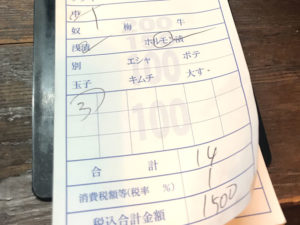 歩 1
奴 梅 牛
浅漬 ホルモン漬
別 エシャ ポテ
玉子 キムチ 大すー
3
100
合 計 14
消費税額等(税率 %) 1
税込合計金額 1500